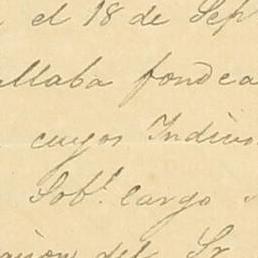 el 18 de Sep
llaba fondea
cuyos Indivi
Sob.l cargo
del Sr